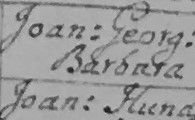 Joan: Georg:
Barbara
Joan: Kuna